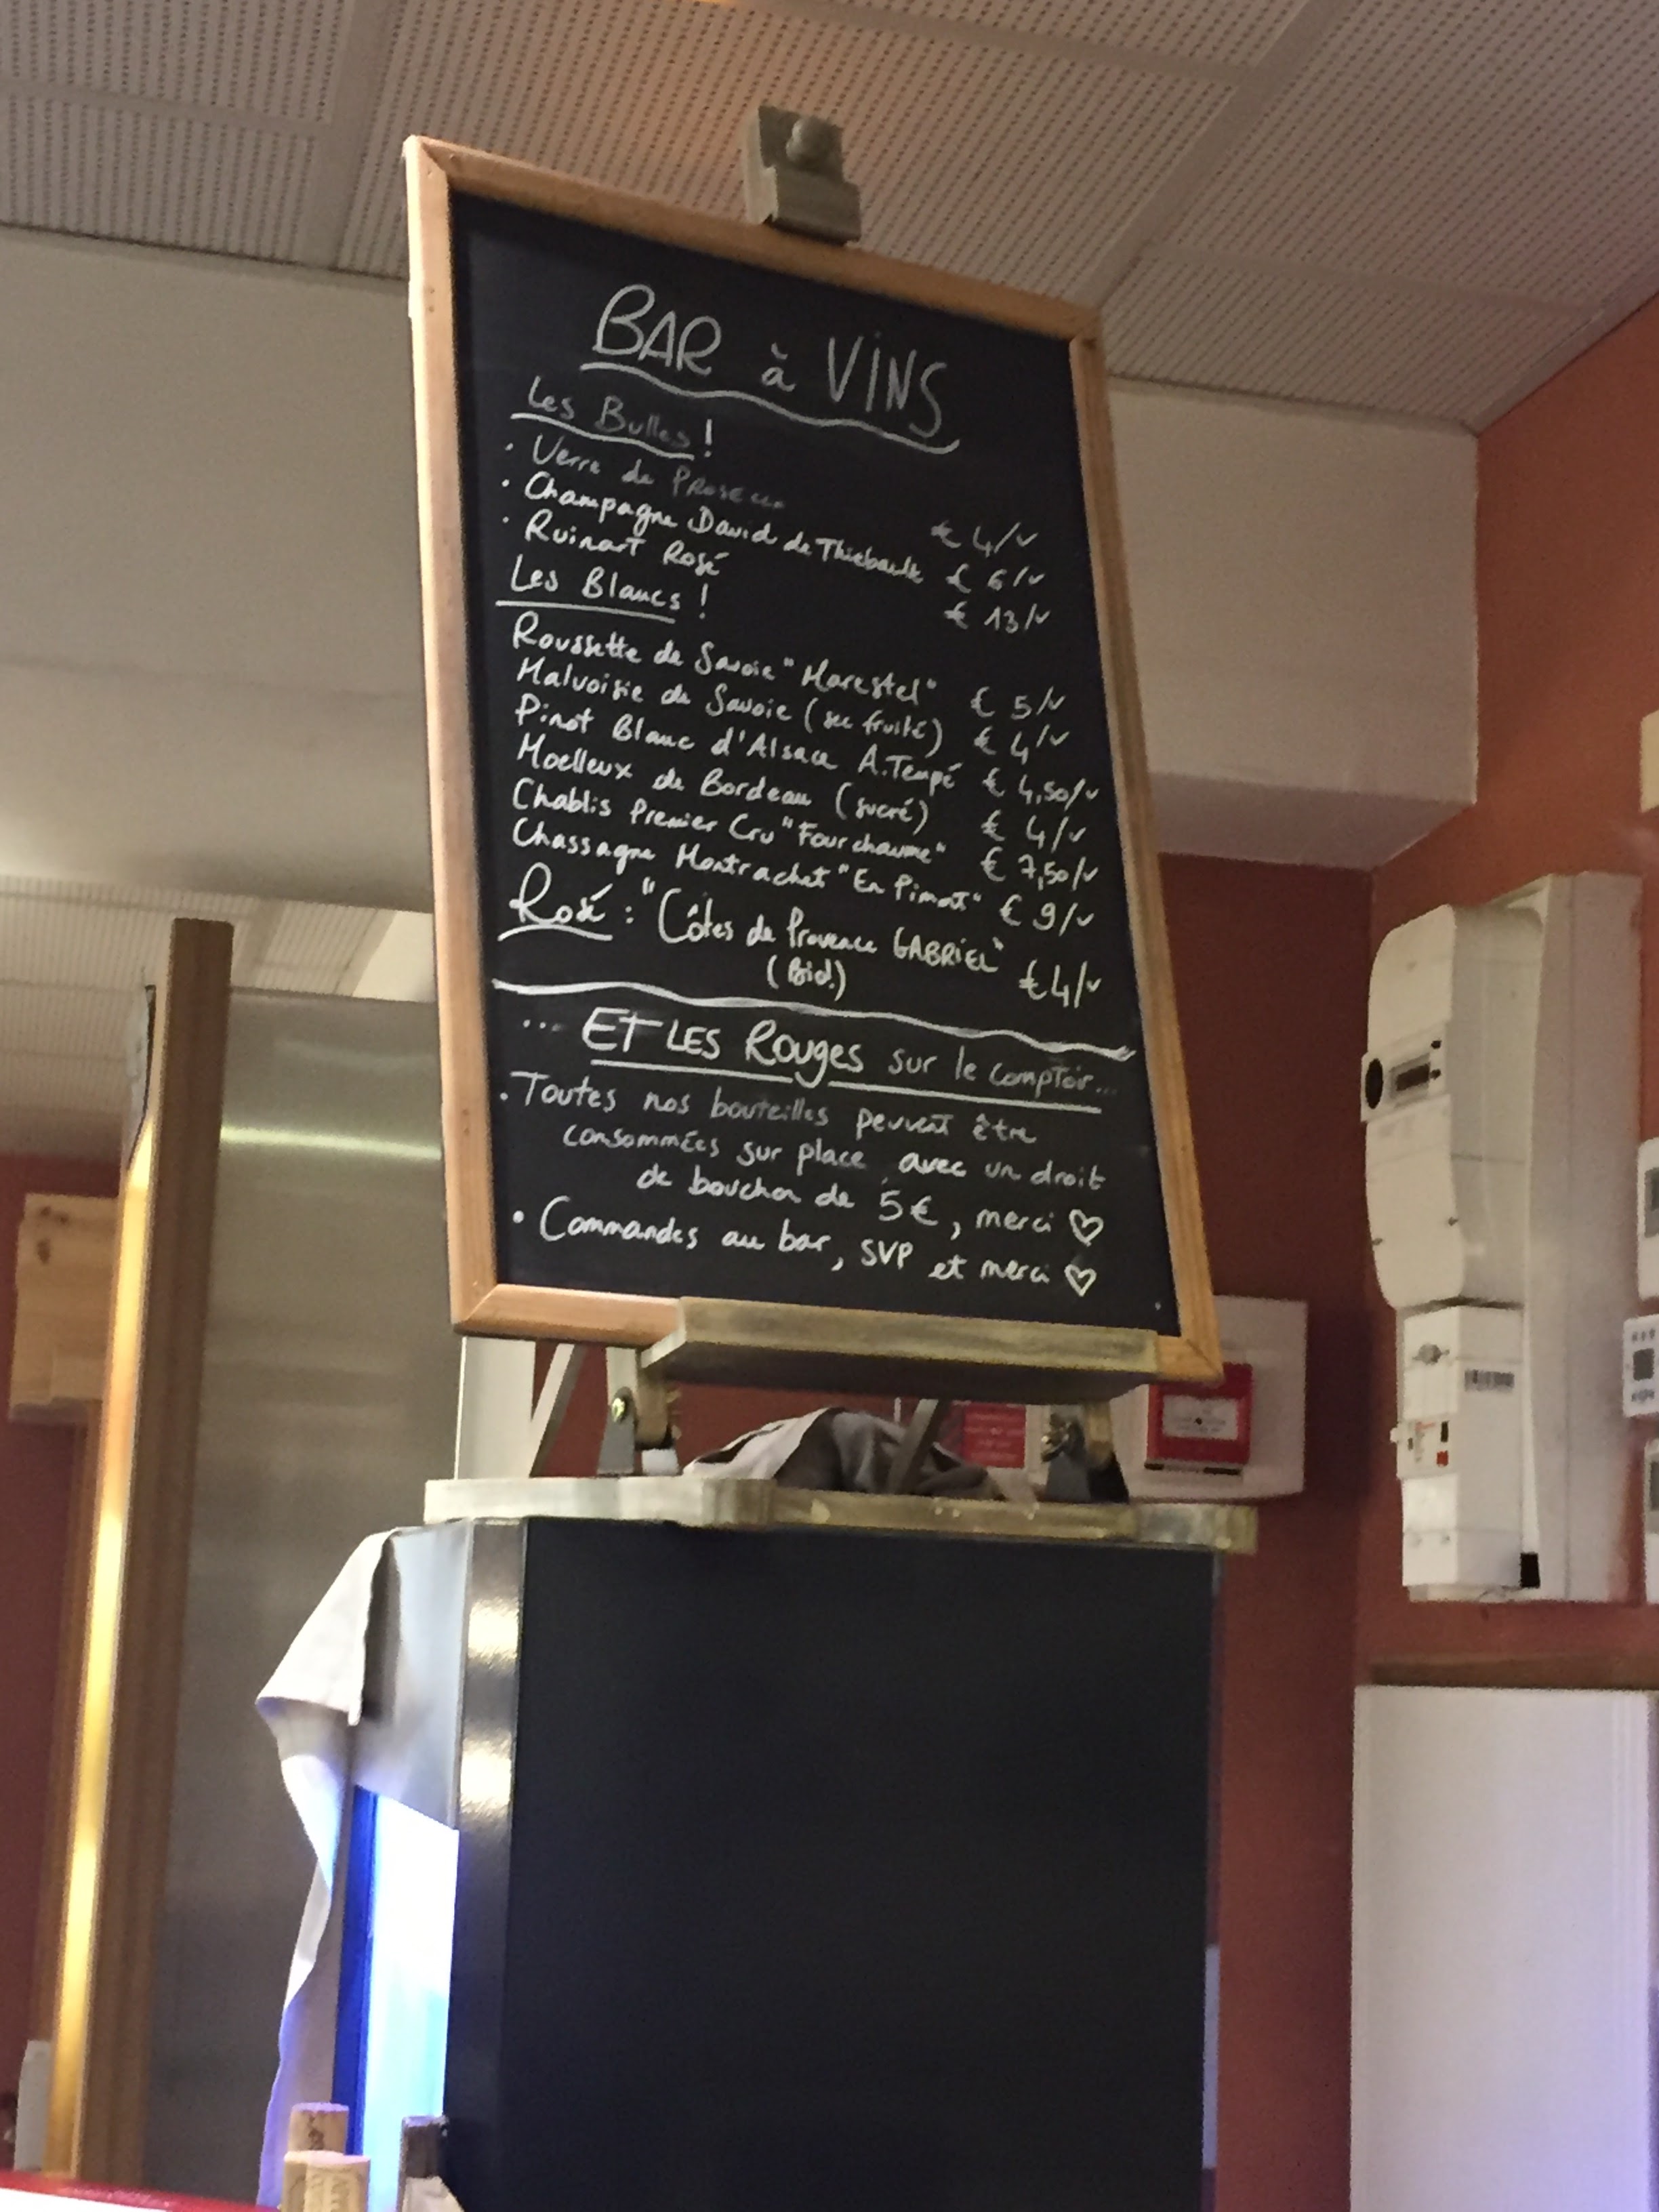 BAR à VINS
Les Bulles !
· Verre de PROSECCO € 4/v
· Champagne David de Thiebault € 6/v
· Ruinart Rosé € 13/v
Les Blancs !
Roussette de Savoie "Marestel" € 5/v
Malvoisie de Savoie (sec fruité) € 4/v
Pinot Blanc d'Alsace A.Tempé € 4,50/v
Moelleux de Bordeau (sucré) € 4/v
Chablis Premier Cru "Fourchaume" € 7,50/v
Chassagne Montrachet "En Pimont" € 9/v
Rosé : "Côtes de Provence GABRIEL" € 4/v
(Bio!)
... ET LES ROUGES sur le comptoir...
· Toutes nos bouteilles peuvent être
consommées sur place avec un droit
de bouchon de 5€, merci ♡
• Commandes au bar, SVP et merci ♡